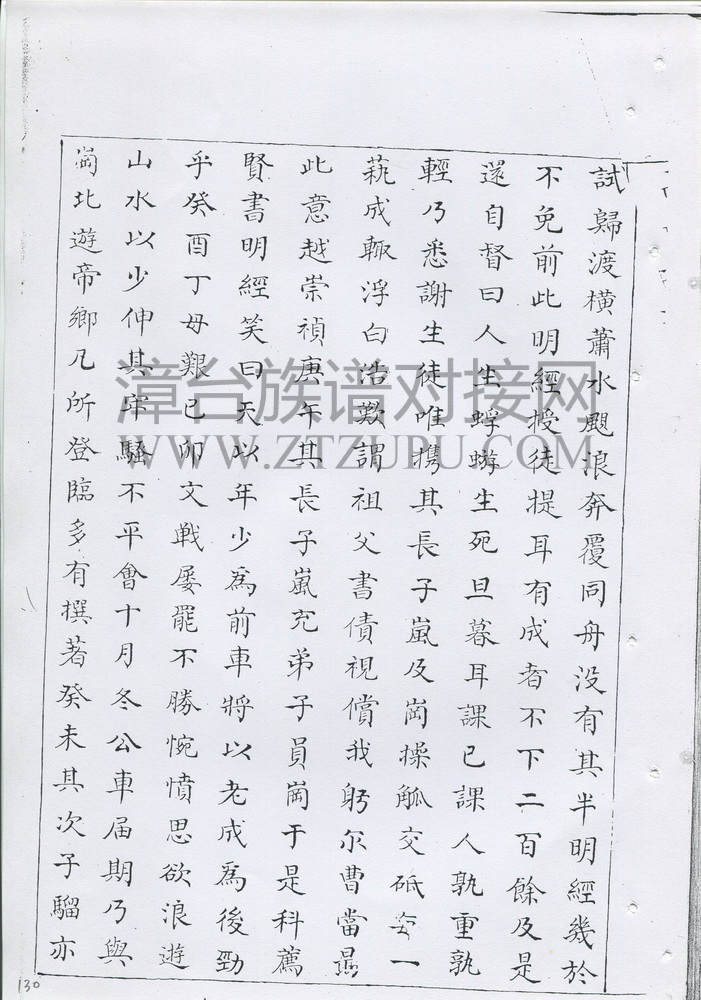 試歸渡橫蕭水颶浪奔覆同舟没有其半明經幾於
不免前此明經授徒提耳有成者不下二百餘及是
還自督曰人生蜉蝣生死旦暮耳課已課人孰重孰
輕乃悉謝生徒唯携其長子嵐及崗操觚交砥每一
蓺成輙浮白浩歎謂祖父書債視償我躬尔曹當勗
此意越崇禎庚午其長子嵐充弟子員崗于是科薦
賢書明經笑曰天以年少爲前車將以老成爲後勁
乎癸酉丁毋艱已卯文戰屡罷不勝惋憤思欲浪遊
山水以少伸其牢騷不平會十月冬公車届期乃與
崗北遊帝鄉凡所登臨多有撰著癸未其次子騮亦
130
漳台族谱对接网
WWW.ZTZUPU.COM